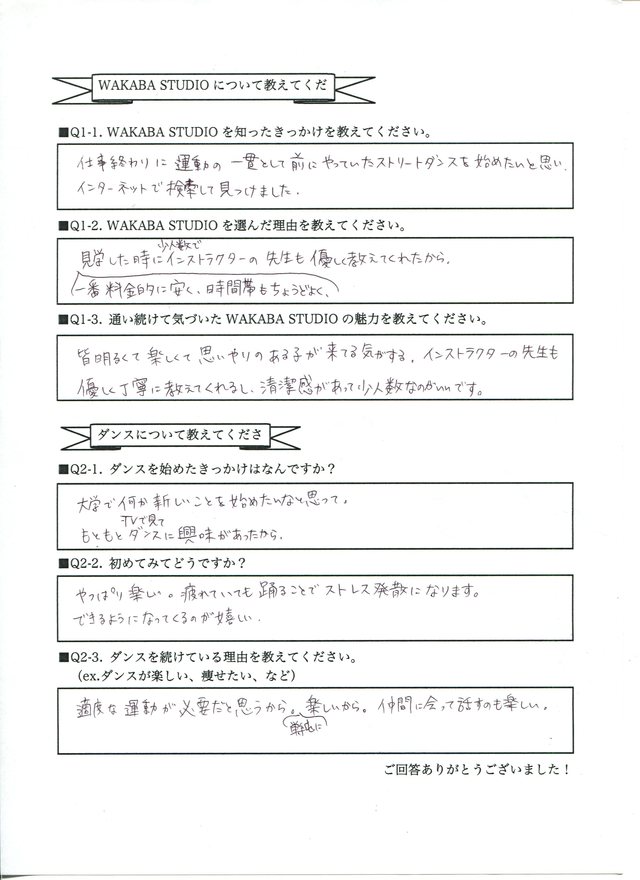 WAKABA STUDIO について教えてくだ
■Q1-1. WAKABA STUDIO を知ったきっかけを教えてください。
仕事終わりに 運動の 一貫として前にやっていたストリートダンスを始めたいと思い、
インターネットで検索して見つけました。
■Q1-2. WAKABA STUDIO を選んだ理由を教えてください。
少人数で
見学した時にインストラクターの先生も優しく教えてくれたから。
一番料金的に安く、時間帯もちょうどよく、
■Q1-3. 通い続けて気づいた WAKABA STUDIO の魅力を教えてください。
皆明るくて楽しくて思いやりのある子が来てる気がする。インストラクターの先生も
優しく丁寧に教えてくれるし、清潔感があって少人数なのがいいです。
ダンスについて教えてくださ
■Q2-1. ダンスを始めたきっかけはなんですか？
大学で何か新しいことを始めたいなと思って。
TVで見て
もともとダンスに興味があったから。
■Q2-2. 初めてみてどうですか？
やっぱり楽しい。疲れていても踊ることでストレス発散になります。
できるようになってくるのが嬉しい。
■Q2-3. ダンスを続けている理由を教えてください。
（ex.ダンスが楽しい、痩せたい、など）
適度な運動が必要だと思うから。楽しいから。仲間に会って話すのも楽しい。
単純に
ご回答ありがとうございました！